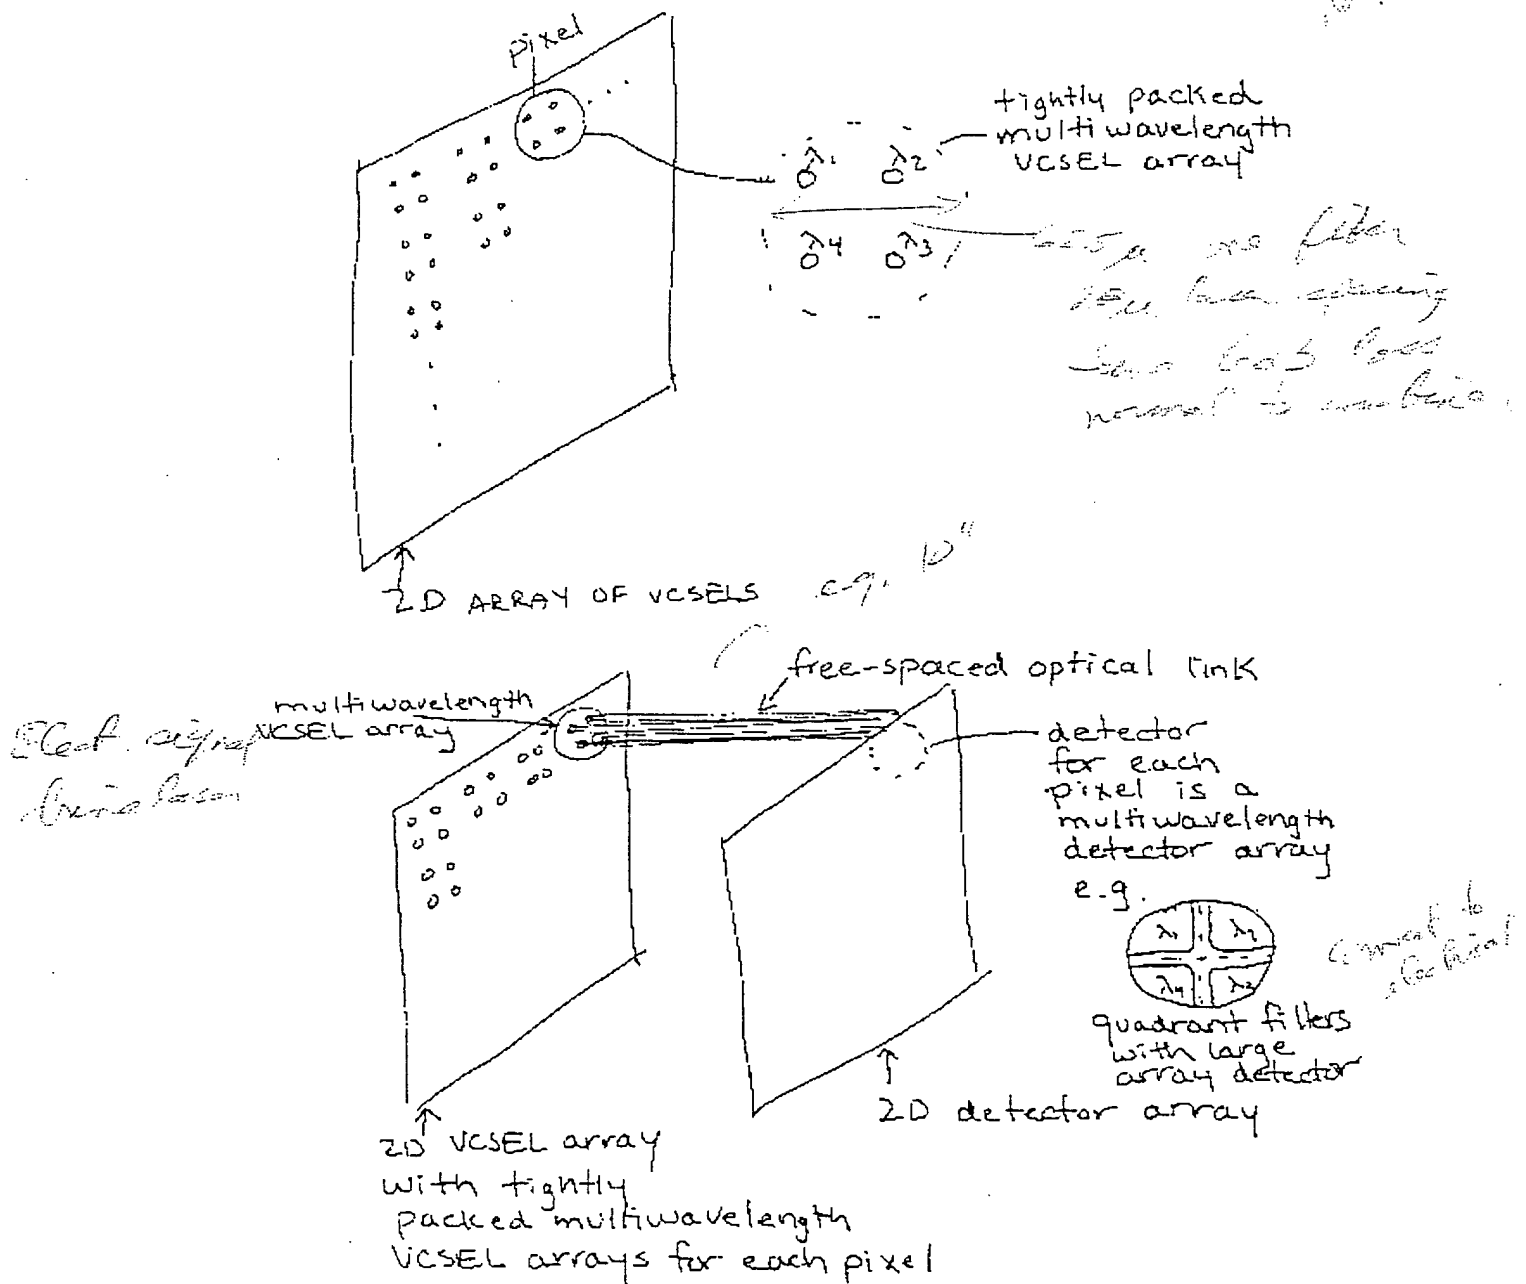 pixel
tightly packed
multiwavelength
VCSEL array
λ1 λ2
λ4 λ3
normal to
2D ARRAY OF VCSELS
e.g. 10"
free-spaced optical link
multiwavelength
VCSEL array
Elect. signal
detector
for each
pixel is a
multiwavelength
detector array
e.g.
λ1 λ2
λ4 λ3
to
quadrant filters
with large
array detector
2D detector array
2D VCSEL array
with tightly
packed multiwavelength
VCSEL arrays for each pixel